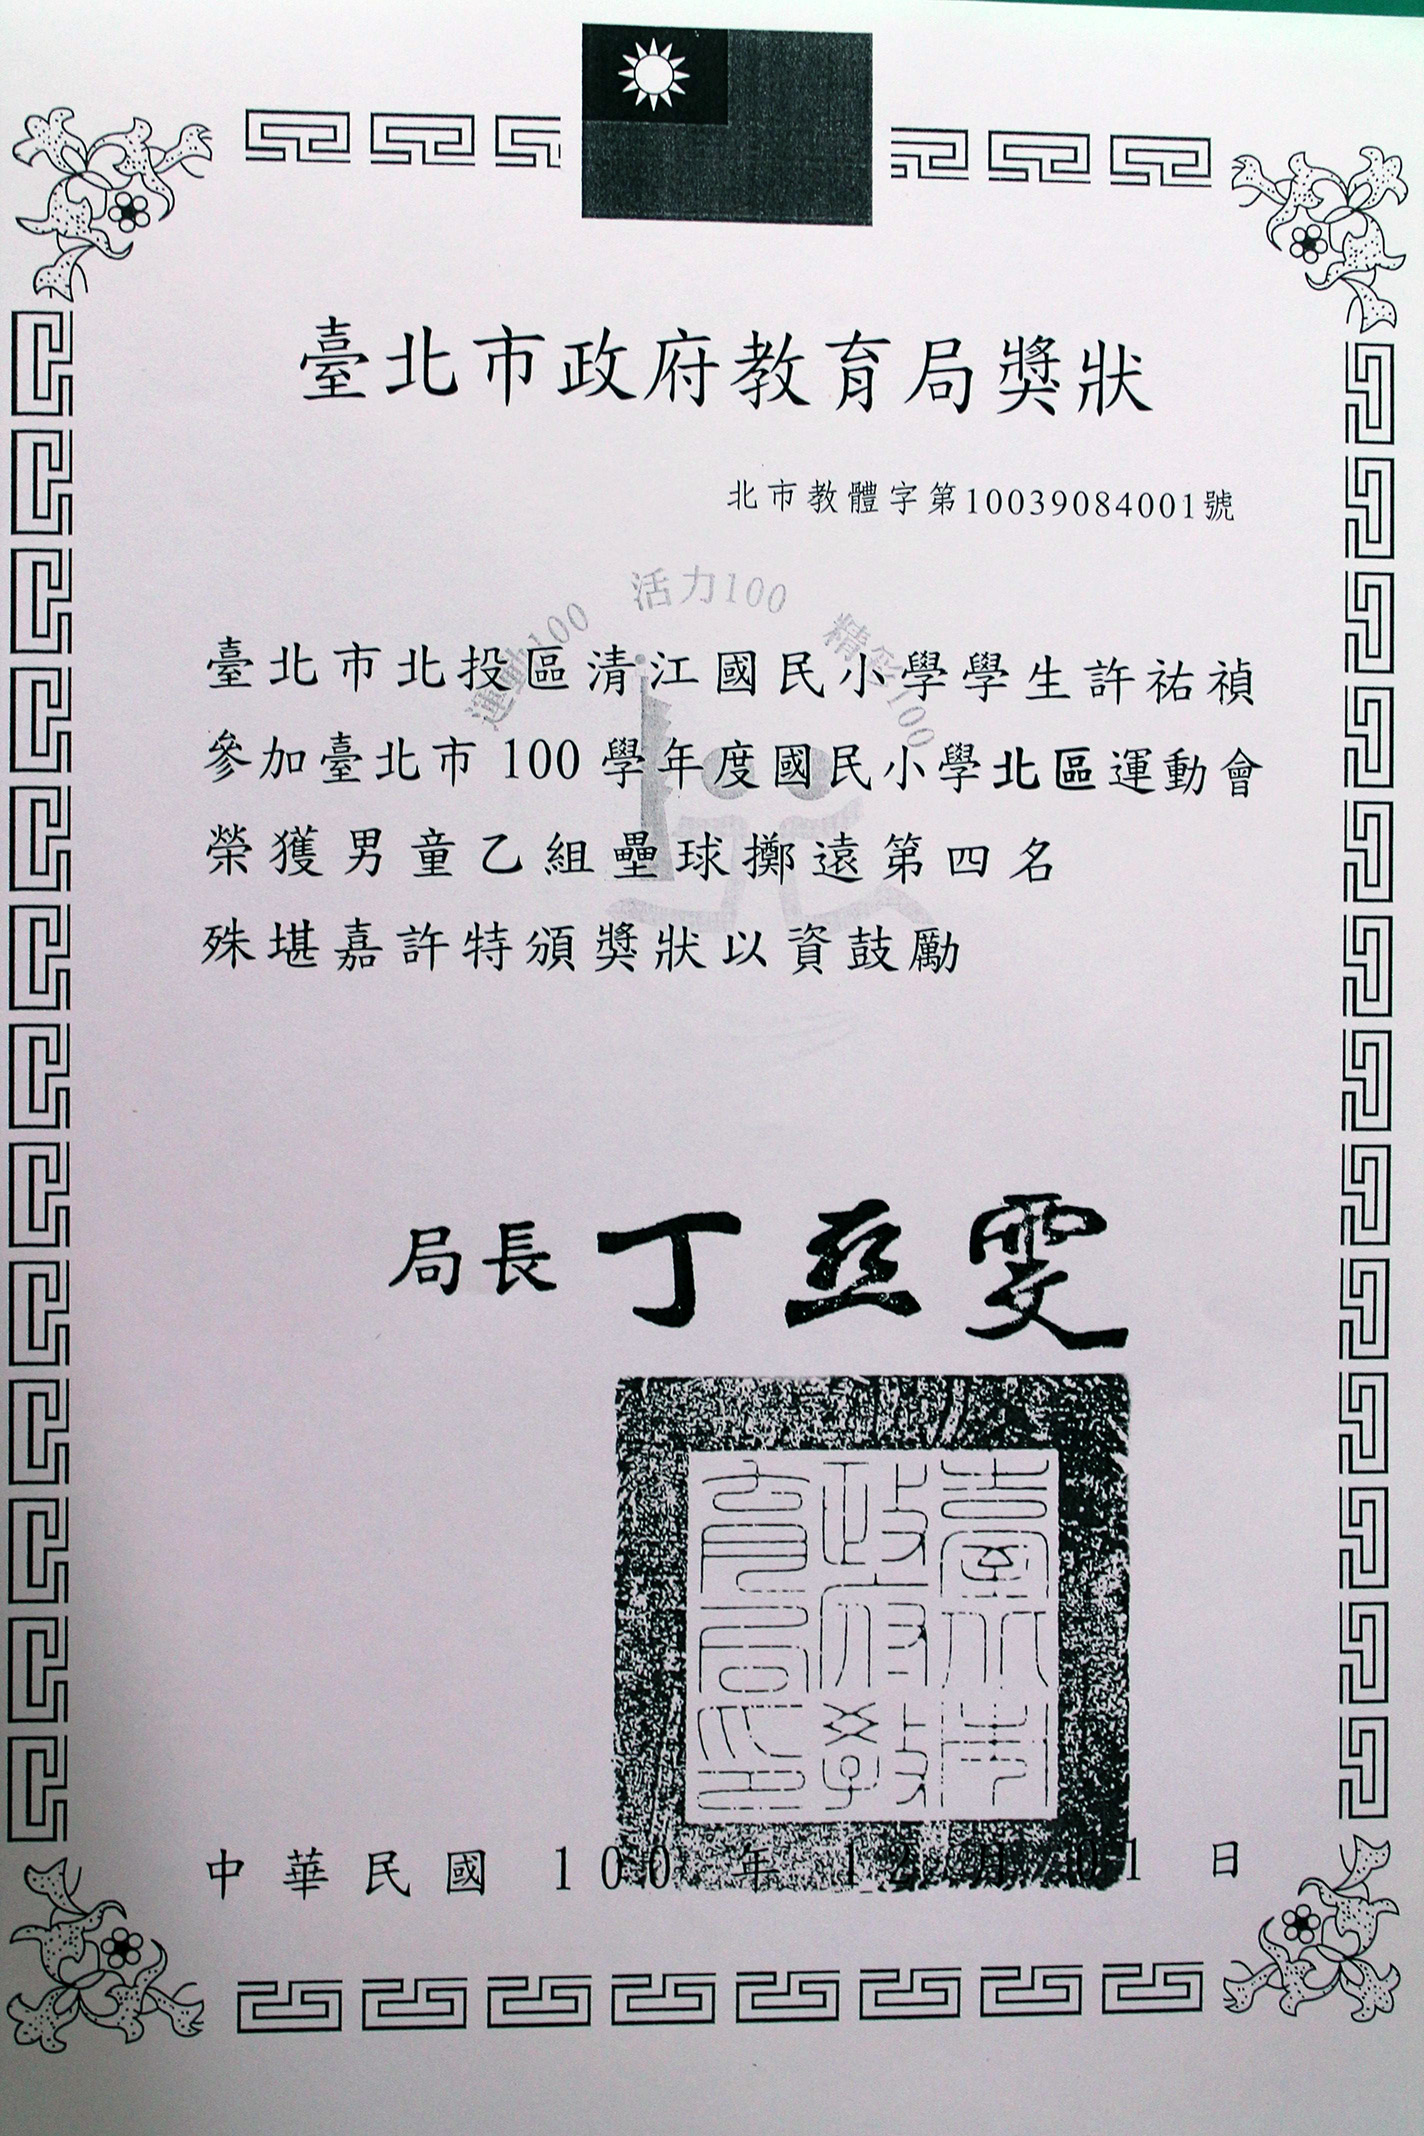 臺北市政府教育局獎狀
北市教體字第10039084001號
運動100 活力100 精彩100
臺北市北投區清江國民小學學生許祐禎
參加臺北市100學年度國民小學北區運動會
榮獲男童乙組壘球擲遠第四名
殊堪嘉許特頒獎狀以資鼓勵
局長丁亞雯
臺北市政府教育局印
中華民國 100 年 12 月 01 日